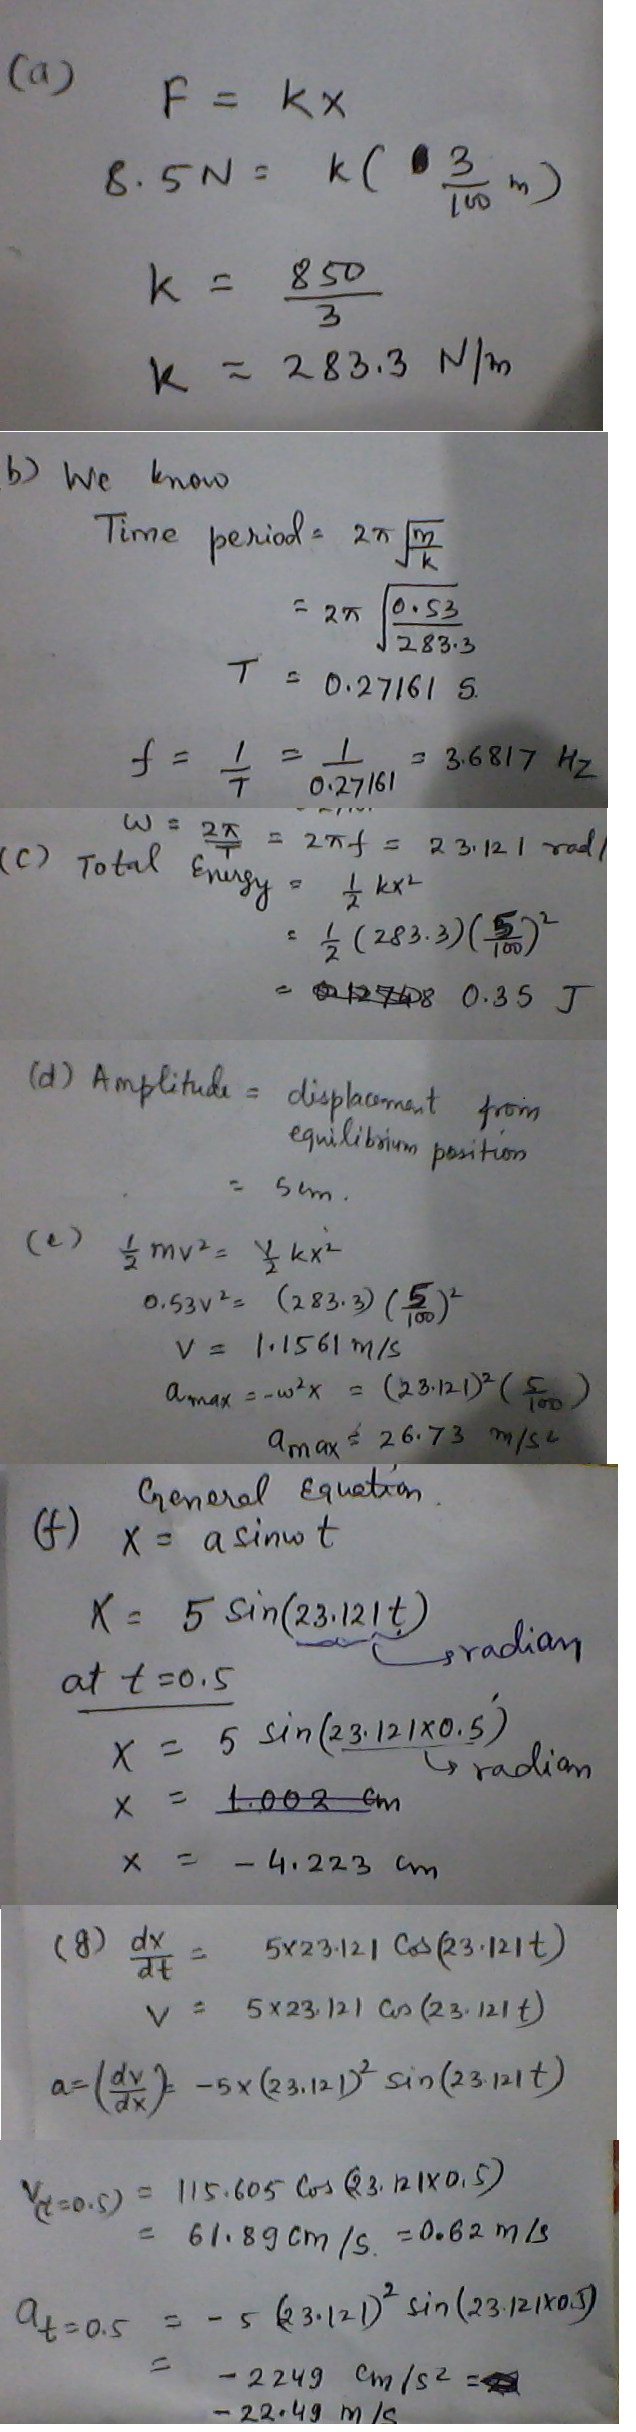 (a)
F = kx
8.5N = k( 3/100 m)
k = 850/3
k = 283.3 N/m
b) We know
Time period = 2π √(m/k)
= 2π √(0.53/283.3)
T = 0.27161 S
f = 1/T = 1/0.27161 = 3.6817 Hz
ω = 2π/T = 2πf = 23.121 rad/
(C) Total Energy = 1/2 kx²
= 1/2 (283.3)(5/100)²
= 0.35 J
(d) Amplitude = displacement from
equilibrium position
= 5cm.
(e) 1/2 mv² = 1/2 kx²
0.53v² = (283.3)(5/100)²
V = 1.1561 m/s
amax = -ω²x = (23.121)²(5/100)
amax = 26.73 m/s²
General Equation.
(f) x = a sinωt
X = 5 sin(23.121t)
radian
at t=0.5
x = 5 sin(23.121×0.5)
radian
x = 1.002 cm
x = -4.223 cm
(g) dx/dt = 5×23.121 Cos(23.121t)
V = 5×23.121 Cos(23.121t)
a=(dv/dx)= -5×(23.121)² sin(23.121t)
V(t=0.5) = 115.605 Cos(23.121×0.5)
= 61.89 cm/s. = 0.62 m/s
at=0.5 = -5 (23.121)² sin(23.121×0.5)
= -2249 cm/s² =
-22.49 m/s